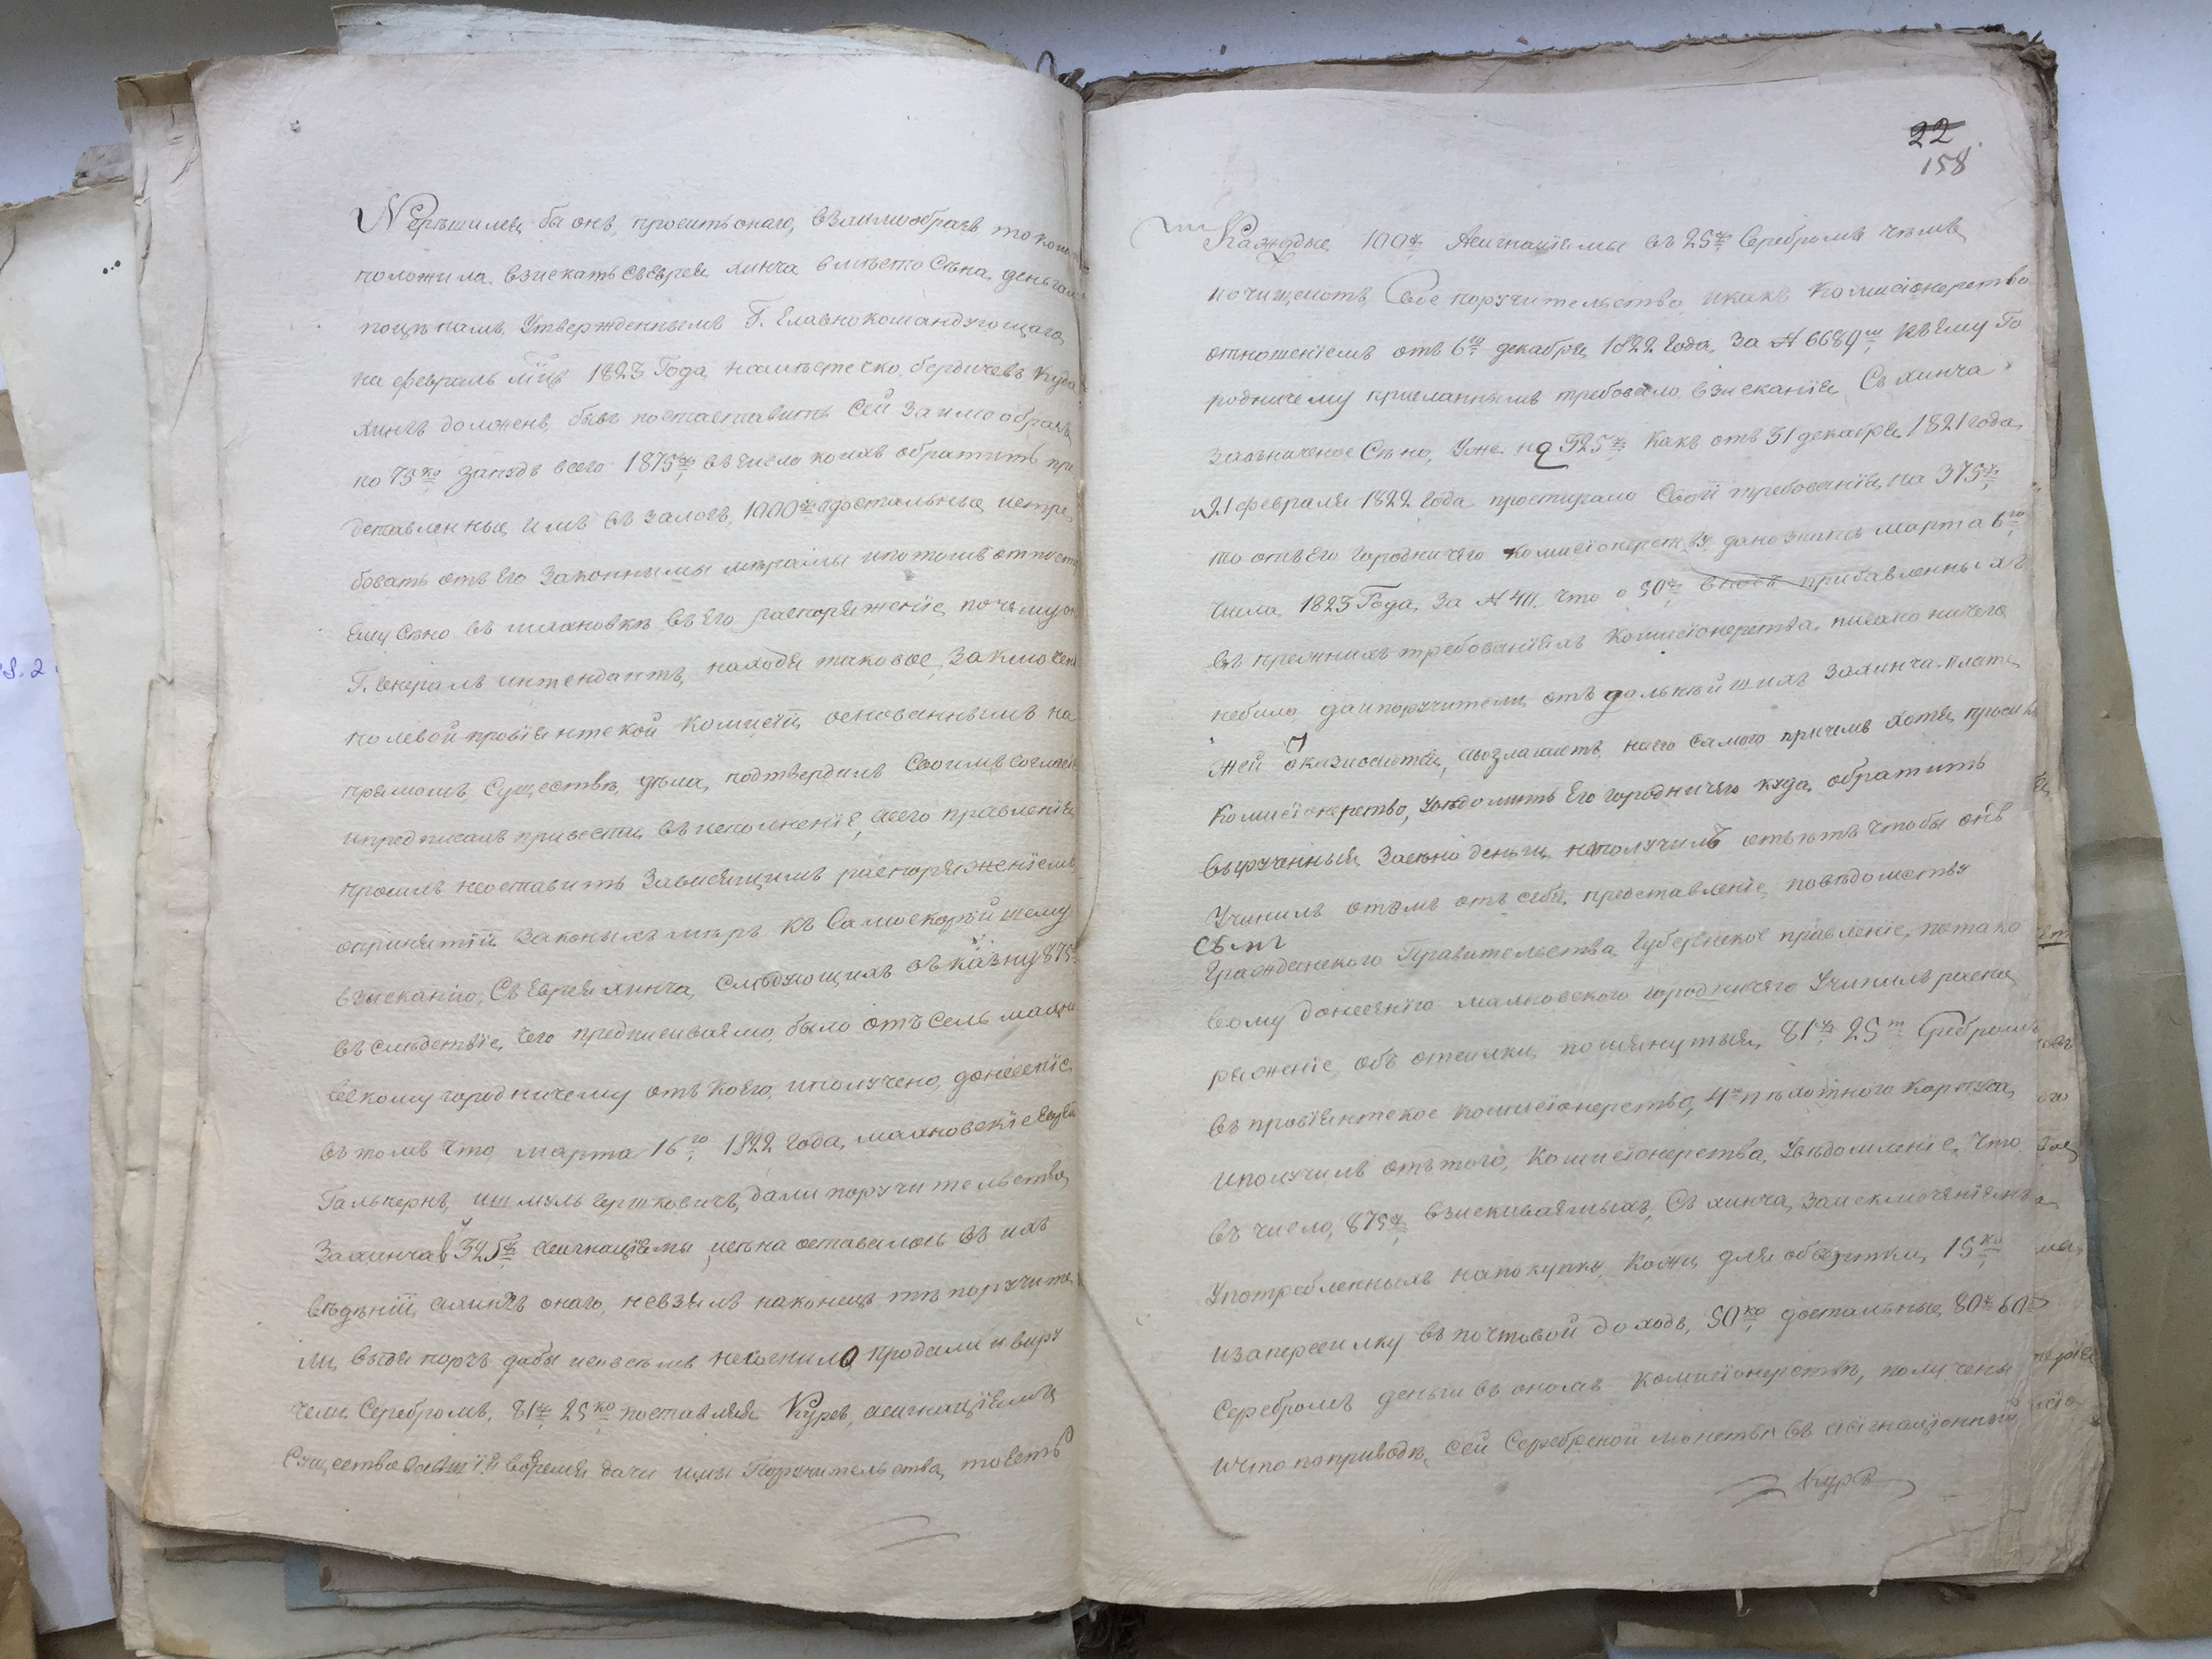 Нерешился бы онъ, просить онаго, взаимообразъ то ком
положила взискать съеврея хинча вместо Сѣна деньгам
поценамъ Утвержденнымъ Г. Главнокомандующаго
на февраль мцъ 1823 Года наместечко бердичевъ куда
хинчъ долженъ бывъ поставить Сей Заимообразъ
по 75 ко запудъ всего 1875 ру въ число коихъ обратить пре
дставленные имъ въ залогъ 1000 ру адостальные истре
бовать отъ Его Законными мерами ипотомъ отпустит
Ему Сено въ махновке въ Его распоряжение почему он
Г. Генералъ интендантъ, находя таковое, Заключени
полевой провиянтской комисии основаннымъ на
прямомъ Существе, дела, подтвердилъ Своимъ согласие
ипредписалъ привести въ исполнение, асего правления
просилъ неоставить Зависящимъ распоряжениемъ
опринятии Законныхъ меръ къ Самоскорейшему
взисканию, Съ Еврея хинча, Следующихъ въ казну 875
въ следствие, чего предписиваемо, было отъ сель махно
вскому городничему отъ коего, иполучено, донесение
въ томъ что, марта 16 го 1822 Года, махновские Евреи
Гальпернъ, ишмуль Гершковичъ, дали поручительство
За хинча в 325 ру асигнациями, исена оставалось въ ихъ
ведении, ахинчъ онаго, невзялъ наконецъ те поручите
ли, видя порчъ дабы исовсемъ несгнило продали и виру
чили Серебромъ, 81 ру 25 ко поставляя Курсъ, асигнациямъ
Существовавший вовремя дачи ими Поручительства, тоесть
22
158
Каждые 100 ру Асигнациями въ 25 ру Серебромъ чемъ
иочищаютъ, Свое поручительство, икакъ комисионерство
отношениемъ отъ 6 го декабря 1822 Года, За № 6689 м къ Ему Го
родничему присланнымъ требовало взискания Съ хинча
Сено, Уже на 325 ру какъ отъ 31 декабря 1821 года
21 февраля 1822 Года простирало Свои требования на 375 ру
то отъ Его городничего комисионерству дано знать марта 6 го
числа 1823 Года За № 411 что о 50 ру прибавленныхъ
въ прежнихъ требованияхъ комисионерства, писано ничего
небило, даипоручители отъ дальнейшихъ Захинча плате
жей отказиваются, авозлагаютъ, на его самого причемъ хотя, просил
комисионерство, Уведомить Его городничего куда обратить
вырученныя Засено деньги, неполучилъ ответъ чтобы онъ
Учинилъ отомъ отъ себя, представление поведомству
съмъ
Гражданского Правительства, Губернское правление, потако
вому донесению махновского городничего Учинилъ распо
ряжение, объ отсилки помянутыя, 81 ру 25 Серебромъ
въ провиянтское комисионерство, 4 го пехотного корпуса,
иполучилъ отътого, комисионерства, Уведомление, что
въ число, 875 ру взискиваемыхъ, Съ хинча, Заисключениемъ
Употребленныхъ напокупку, кожи, для обвертки, 15 ко
изапересилку въ почтовой доходъ, 50 ко достальные, 80 ру 60 ко
Серебромъ деньги въ ономъ комисионерстве, получены
ичто поприводе, сей Серебреной монеты въ асигнационный
Курсъ